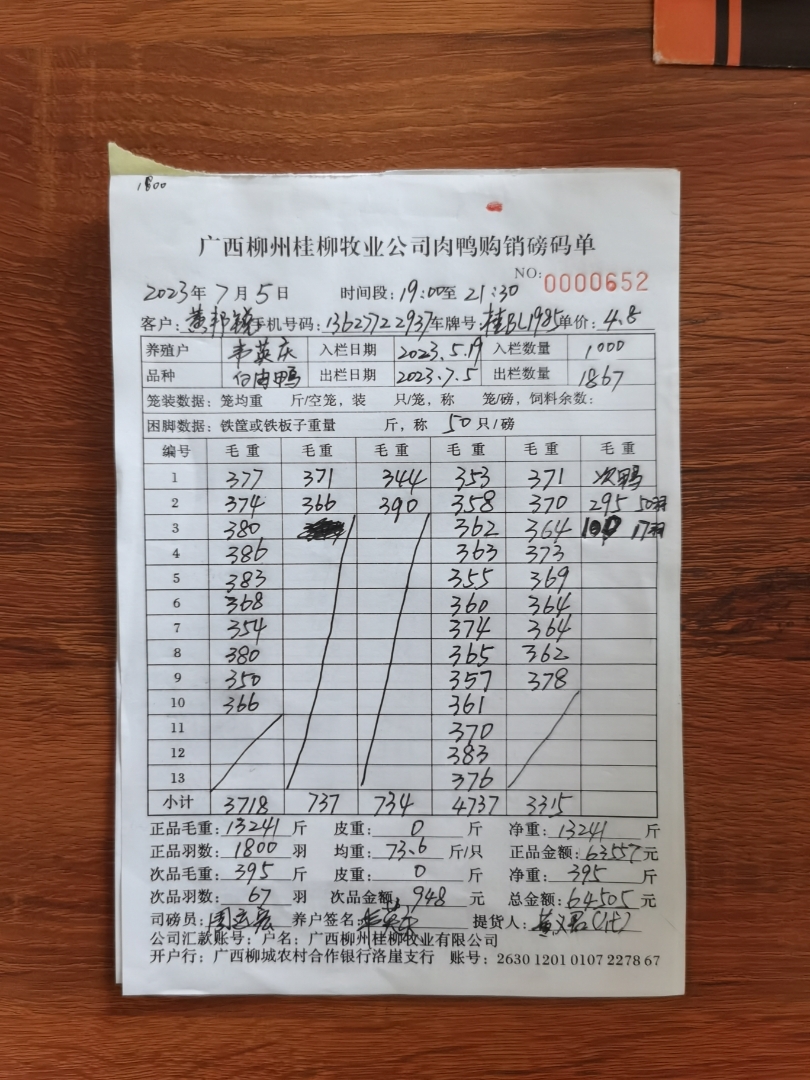 1800
广西柳州桂柳牧业公司肉鸭购销磅码单
NO: 0000652
2023年 7月 5日 时间段: 19:00至 21:30
客户: 黄邦 手机号码: 13627722937 车牌号: 桂BL1985 单价: 4.8
养殖户 韦英庆 入栏日期 2023.5.19 入栏数量 1000
品种 白肉鸭 出栏日期 2023.7.5 出栏数量 1867
笼装数据: 笼均重 斤/空笼, 装 只/笼, 称 笼/磅, 饲料余数:
困脚数据: 铁筐或铁板子重量 斤, 称 50 只/磅
编号 毛重 毛重 毛重 毛重 毛重 毛重
1 377 371 344 353 371 次鸭
2 374 366 390 358 370 295 50羽
3 380 362 364 100 17羽
4 386 363 373
5 383 355 369
6 368 360 364
7 354 374 364
8 380 365 362
9 350 357 378
10 366 361
11 370
12 383
13 376
小计 3718 737 734 4737 3315
正品毛重: 13241 斤 皮重: 0 斤 净重: 13241 斤
正品羽数: 1800 羽 均重: 73.6 斤/只 正品金额: 63557 元
次品毛重: 395 斤 皮重: 0 斤 净重: 395 斤
次品羽数: 67 羽 次品金额: 948 元 总金额: 64505 元
司磅员: 养户签名: 韦英庆 提货人: (代)
公司汇款账号: 户名: 广西柳州桂柳牧业有限公司
开户行: 广西柳城农村合作银行洛崖支行 账号: 2630 1201 0107 2278 67